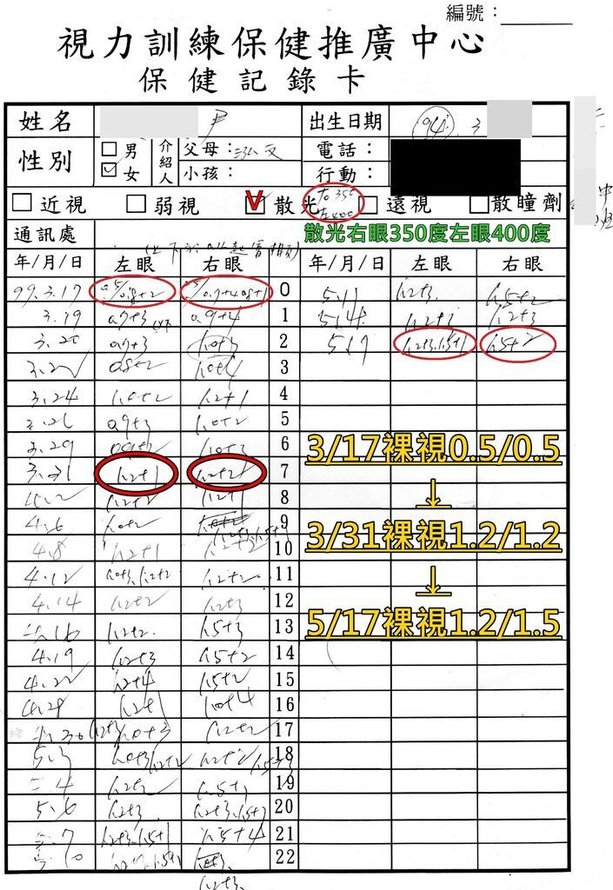 編號：
視力訓練保健推廣中心
保健記錄卡
姓名 出生日期 94. 3
性別 □男 ☑女 介紹人 父母： 小孩： 電話： 行動：
□近視 □弱視 ☑散光 右350 左400 □遠視 □散瞳劑
通訊處 散光右眼350度左眼400度
年/月/日 左眼 右眼 年/月/日 左眼 右眼
99.3.17 0 5.11 1.2+3 1.5+2
3.19 0.9+3 0.9+4 1 5.14 1.2+3 1.2+3
3.20 0.9+3 1.0+3 2 5.17 1.2+3.1.5+1 1.5+2
0.8+2 1.0+4 3
3.24 1.0+2 1.2+1 4
3.26 0.9+3 1.0+2 5
3.29 1.0+3 6
3/17裸視0.5/0.5
3.31 1.2+1 1.2+2 7
↓
4.2 1.2+2 1.2+1 8
4.6 1.0+2 9
3/31裸視1.2/1.2
4.8 1.2+1 10
4.12 1.0+3.1.2+2 1.2+2 11
↓
4.14 1.2+2 1.2+3 12
5/17裸視1.2/1.5
4.16 1.2+2 1.5+3 13
4.19 1.2+3 1.5+2 14
4.22 1.2+4 1.5+2 15
4.28 1.2+1 1.0+4 16
1.0+3 1.2+2 17
5.3 1.0+3 1.2+2 1.2+2 18
1.2+2 1.5+1 19
5.6 1.2+3 1.2+3.1.5+1 20
5.7 1.2+3.1.5+1 1.5+4 21
22
1.2+3